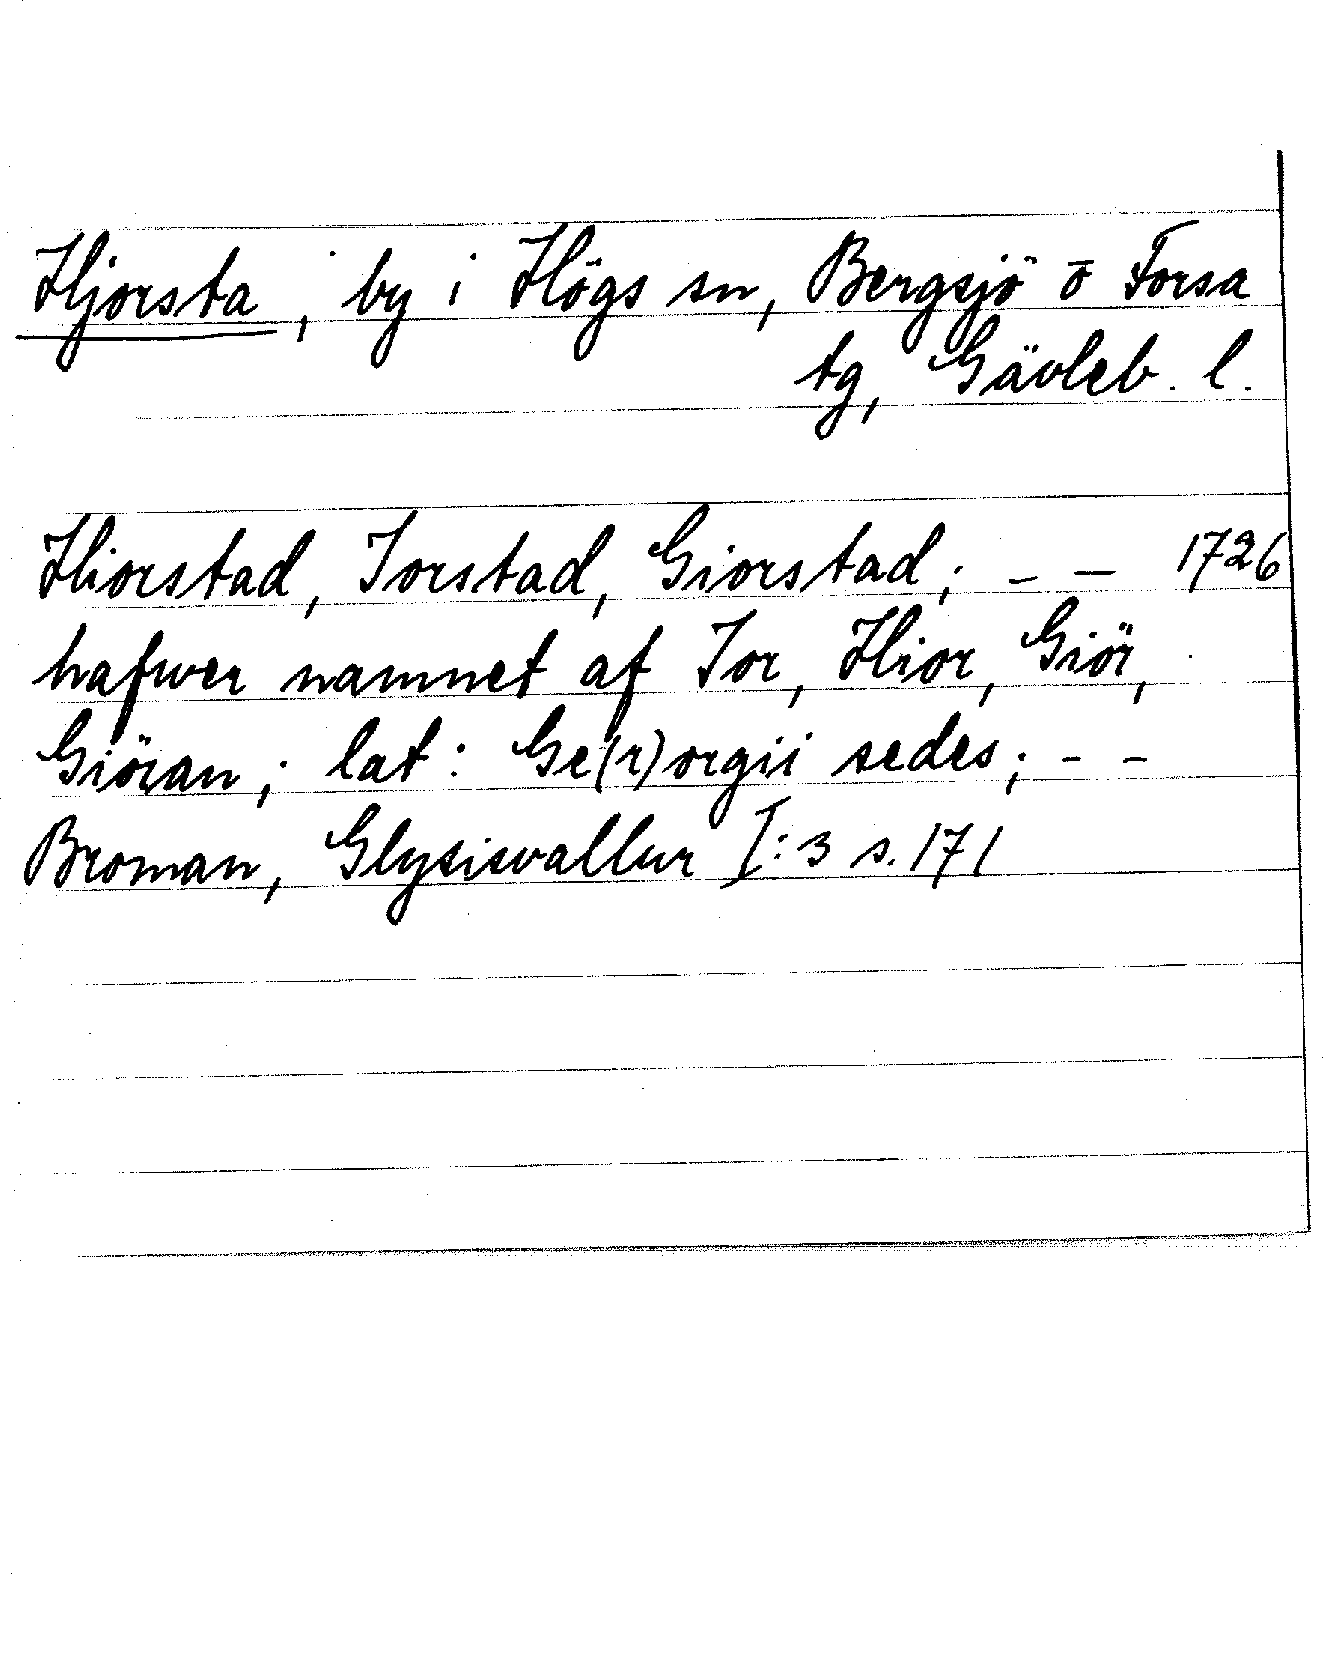 Hjorsta, by i Högs sn, Bergsjö o Forsa
tg, Gävleb. l.
Hiorstad, Jorstad, Giorstad; - - 1726
hafwer namnet af Jor, Hior, Giör,
Giöran; lat: Ge(r)orgii sedes; - -
Broman, Glysisvallur I:3 s. 171